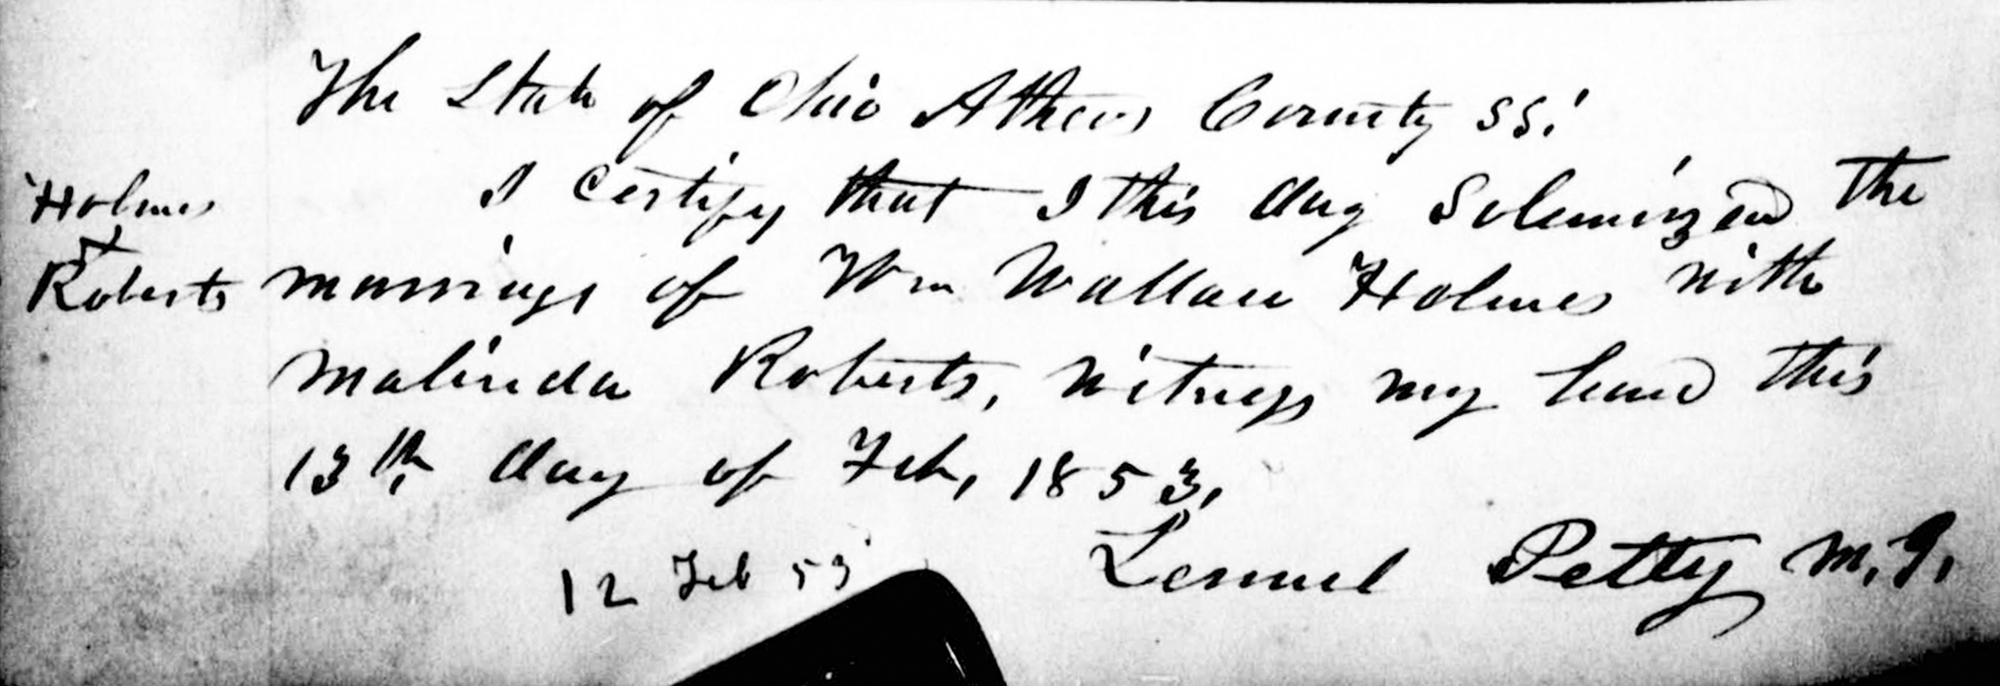 The State of Ohio Athens County SS!
Holmes
&
Roberts
I Certify that I this day Solemnized the
marriage of Wm Wallace Holmes with
Malinda Roberts, witness my hand this
13th day of Feb, 1853,
Lemuel Petty M.G.
12 Feb 53